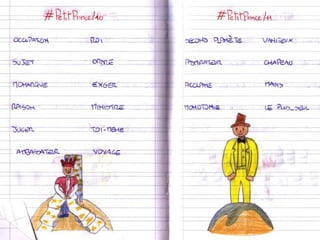 #PetitPrince/10
OCCUPATION ROI
SUJET ORDRE
MONARQUE EXIGER
RAISON MINISTRE
JUGER TOI-MÊME
AMBASSADEUR VOYAGE
#PetitPrince/11
SECOND PLANÈTE VANITEUX
ADMIRATEUR CHAPEAU
ACCLAMER MAINS
MONOTONIE LE PLUS